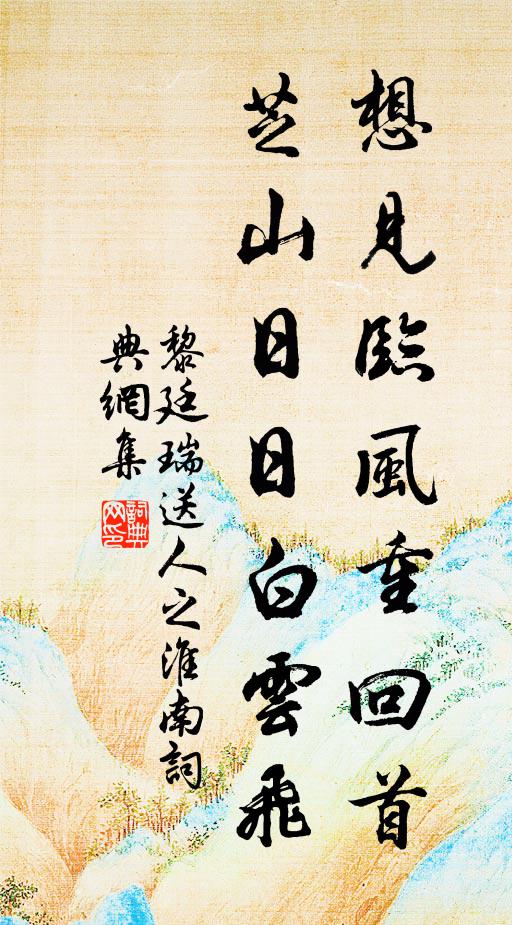 想見臨風重回首
芝山日日白雲飛
黎廷瑞送人之淮南詞
典網集
詞典
网印